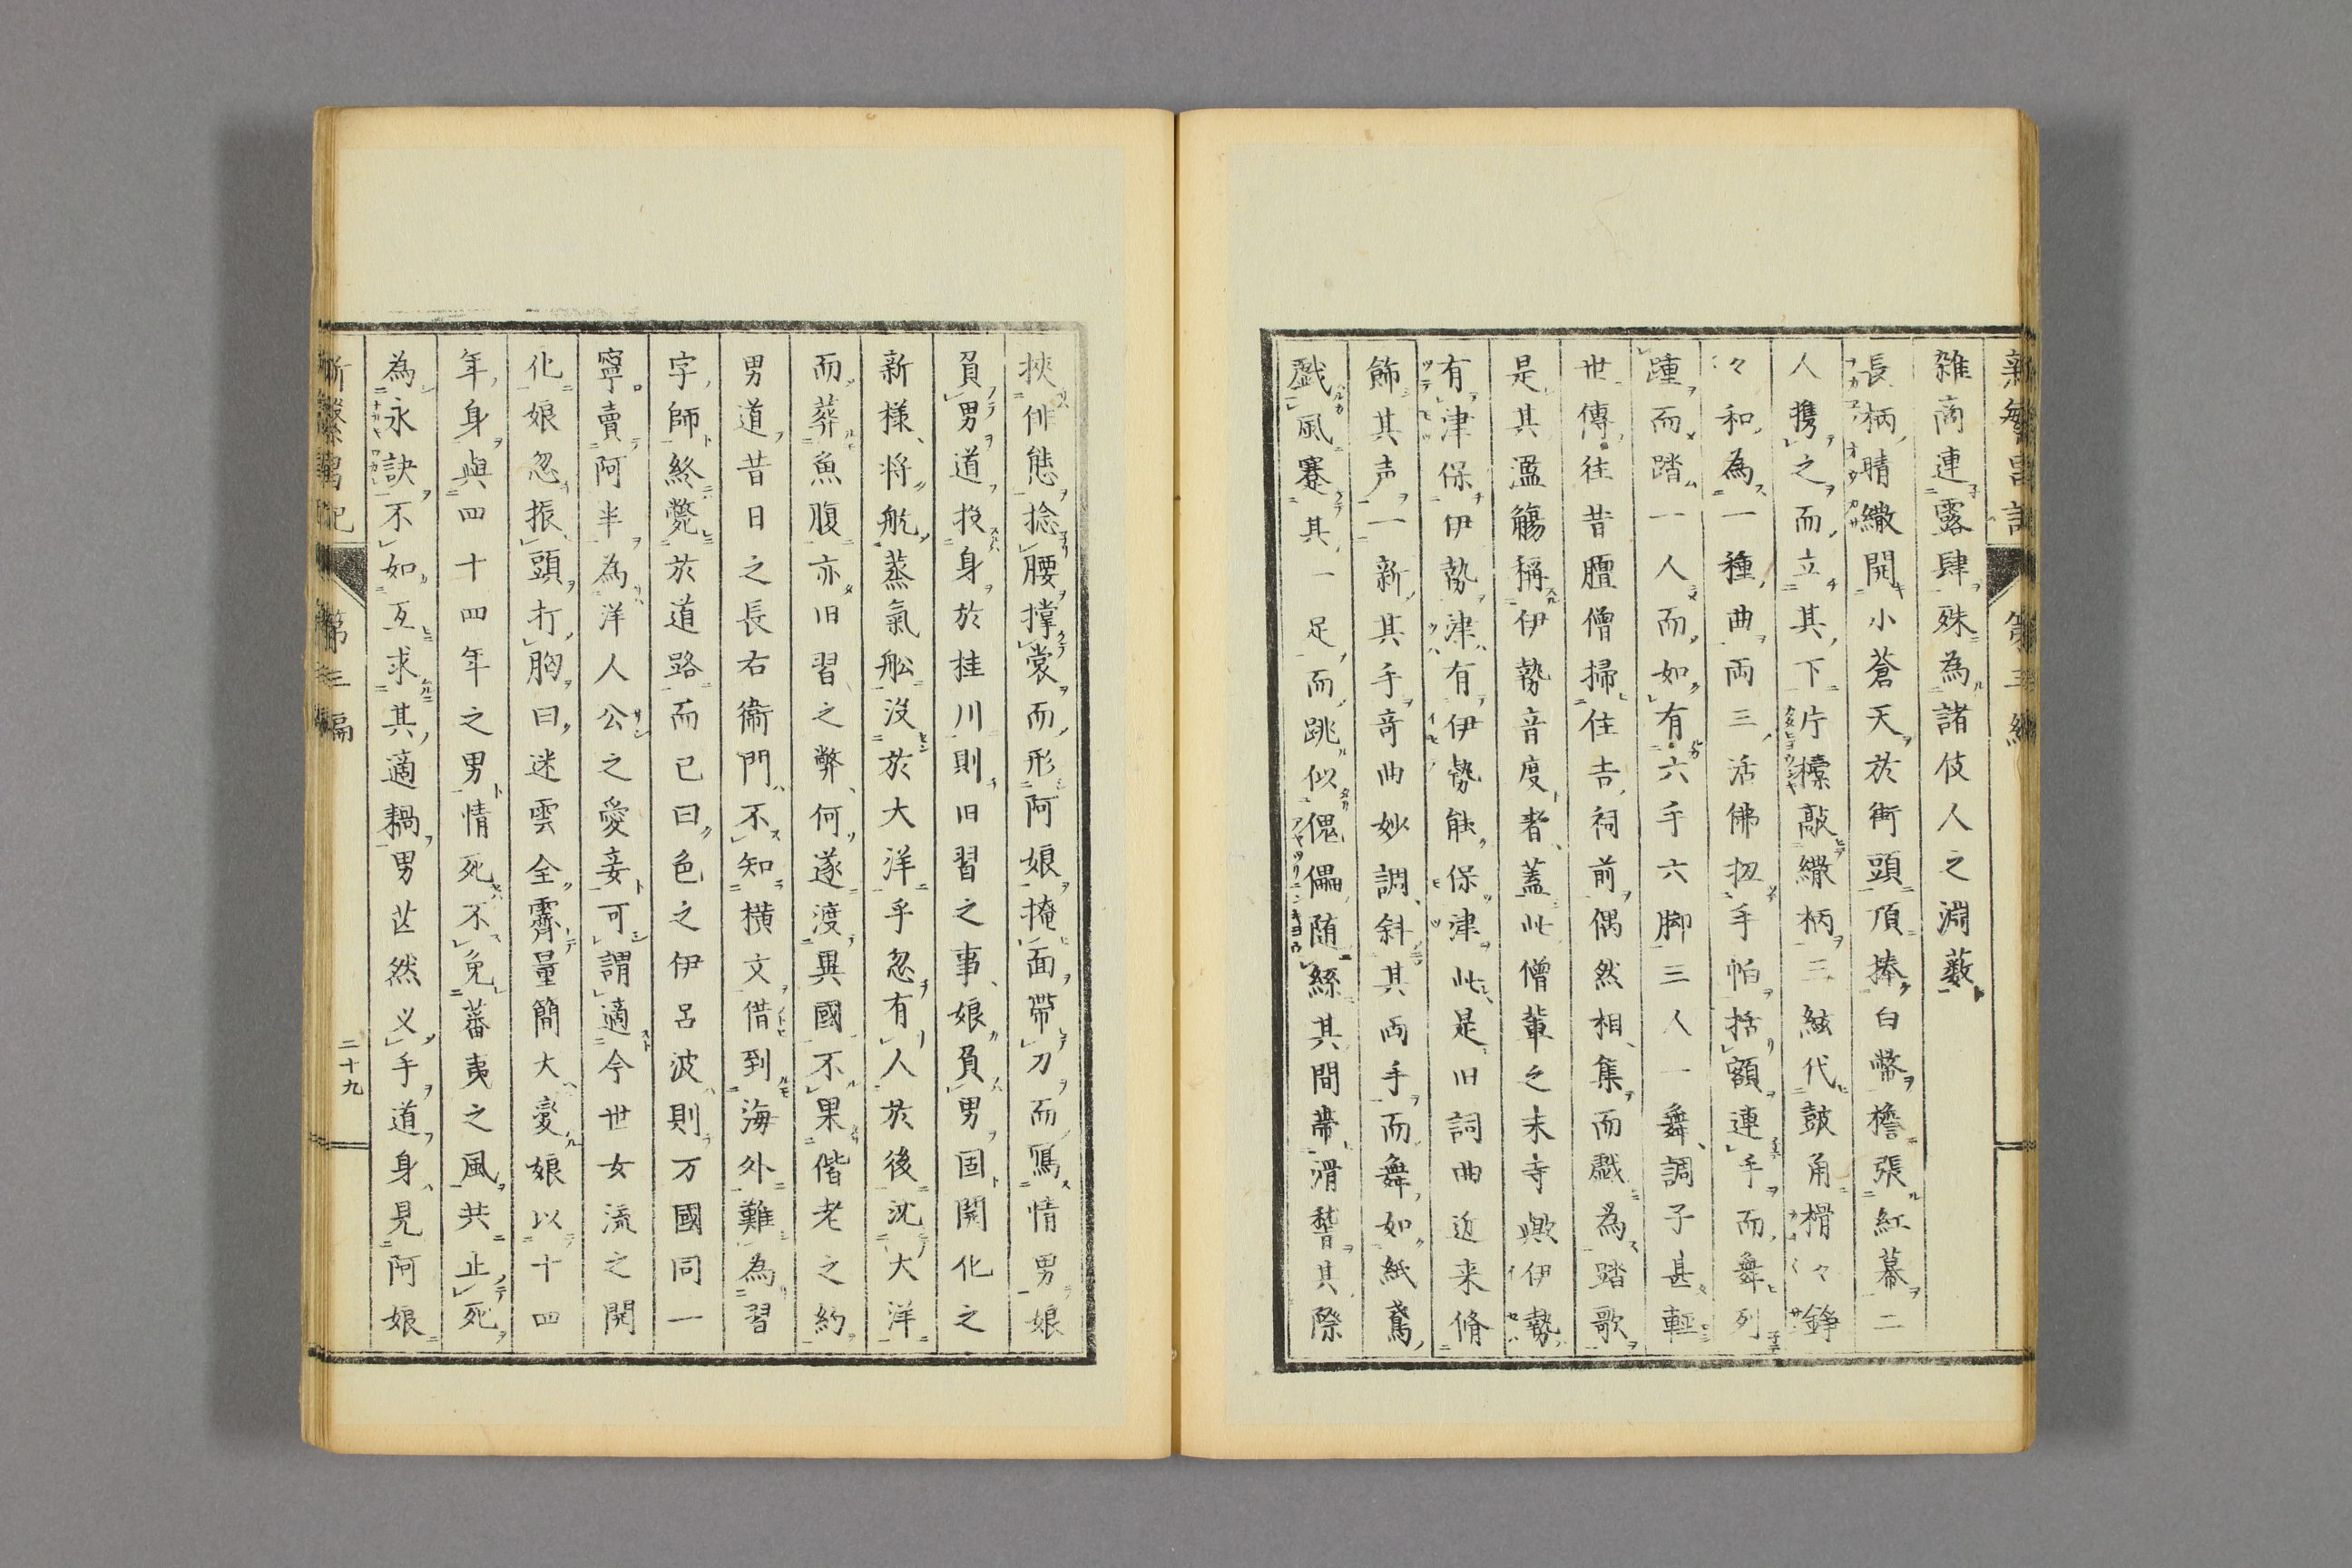 雑商連露肆殊為諸伎人之淵藪
長柄晴繖開小蒼天於街頭頂捧白幣檐張紅幕二
人携之而立其下片檪敲繖柄三絃代鼓角榾々錚
々和為一種曲両三活佛扭手帕括額連手而舞列
踵而踏一人而如有六手六脚三人一舞調子甚輕
世傳往昔膻僧掃住吉祠前偶然相集而戲為踏歌
是其濫觴稱伊勢音度者蓋此僧輩之末寺歟伊勢
有津保伊勢津有伊勢能保津此是旧詞曲近来脩
飾其声一新其手竒曲妙調斜其両手而舞如紙鳶
戲風蹇其一足而跳似傀儡随絲其間帯滑稽其際
挾俳態捻腰撑裳而形阿娘掩面帶刀而寫情男娘
負男道投身於桂川則旧習之事娘負男固開化之
新様将航蒸氣舩没於大洋乎忽有人於後沈大洋
而葬魚腹亦旧習之弊何遂渡異國不果偕老之約
男道昔日之長右衞門不知横文借到海外難為習
字師終斃於道路而已曰色之伊呂波則万國同一
寧賣阿半為洋人公之愛妾可謂適今世女流之開
化娘忽振頭打胸曰迷雲全霽量簡大変娘以十四
年身與四十四年之男情死不免蕃夷之風共止死
為永訣不如互求其適耦男芒然义手道身見阿娘
新繁昌記 第三編
二十九